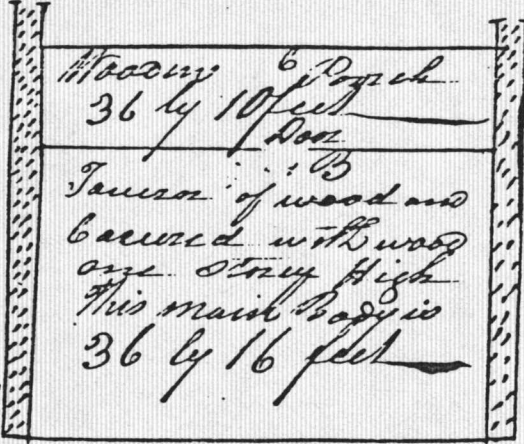 Wooden 6 Porch
36 by 10 feet
Door
B
Tavern of wood and
Covered with wood
one Storey High
This main Body is
36 by 16 feet